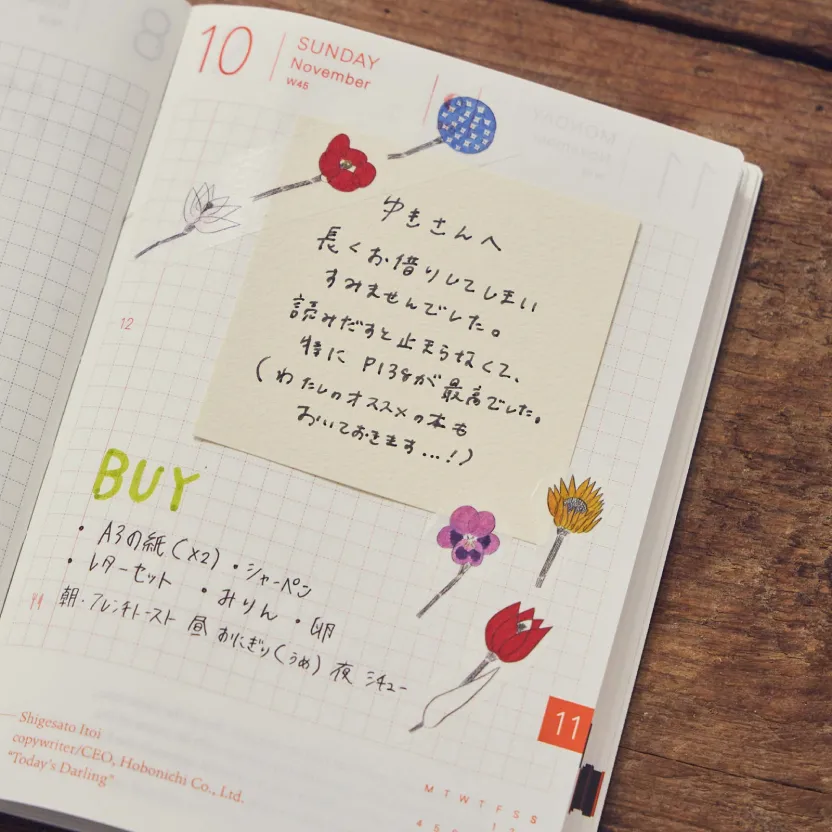 8
10
SUNDAY
November
W45
MONDAY
11
ゆきさんへ
長くお借りしてしまい
すみませんでした。
読みだすと止まらなくて、
特に P138が最高でした。
(わたしのオススメの本も
おいておきます…!)
12
BUY
・A3の紙(×2)・シャーペン
・レターセット ・みりん ・卵
朝・フレンチトースト 昼 おにぎり(うめ) 夜 シチュー
Shigesato Itoi
copywriter/CEO, Hobonichi Co., Ltd.
"Today's Darling"
11
M T W T F S S